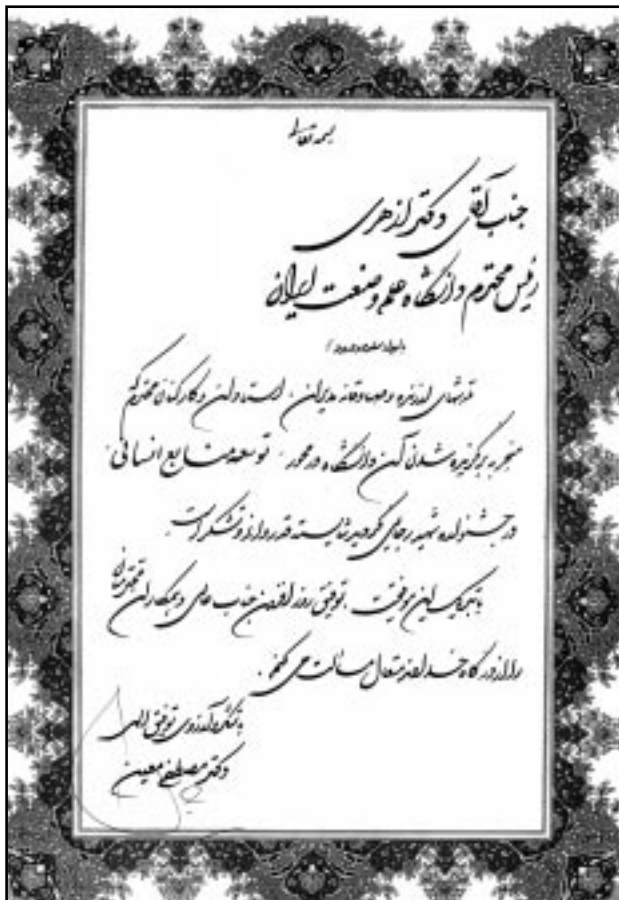 بسمه تعالی
جناب آقای دکتر ازهری
رئیس محترم دانشگاه علم و صنعت ایران
با سلام و درود
تلاشهای ارزنده و صادقانه مدیران، استادان و کارکنان محترم که
منجر به برگزیده شدن آن دانشگاه در محور "توسعه منابع انسانی"
در جشنواره شهید رجایی گردید شایسته قدردانی و تشکر است.
با تبریک این موفقیت، توفیق روز افزون جناب عالی و همکاران محترمتان
را از درگاه خداوند متعال مسألت می کنم.
با تشکر و آرزوی توفیق الهی
دکتر مصطفی معین